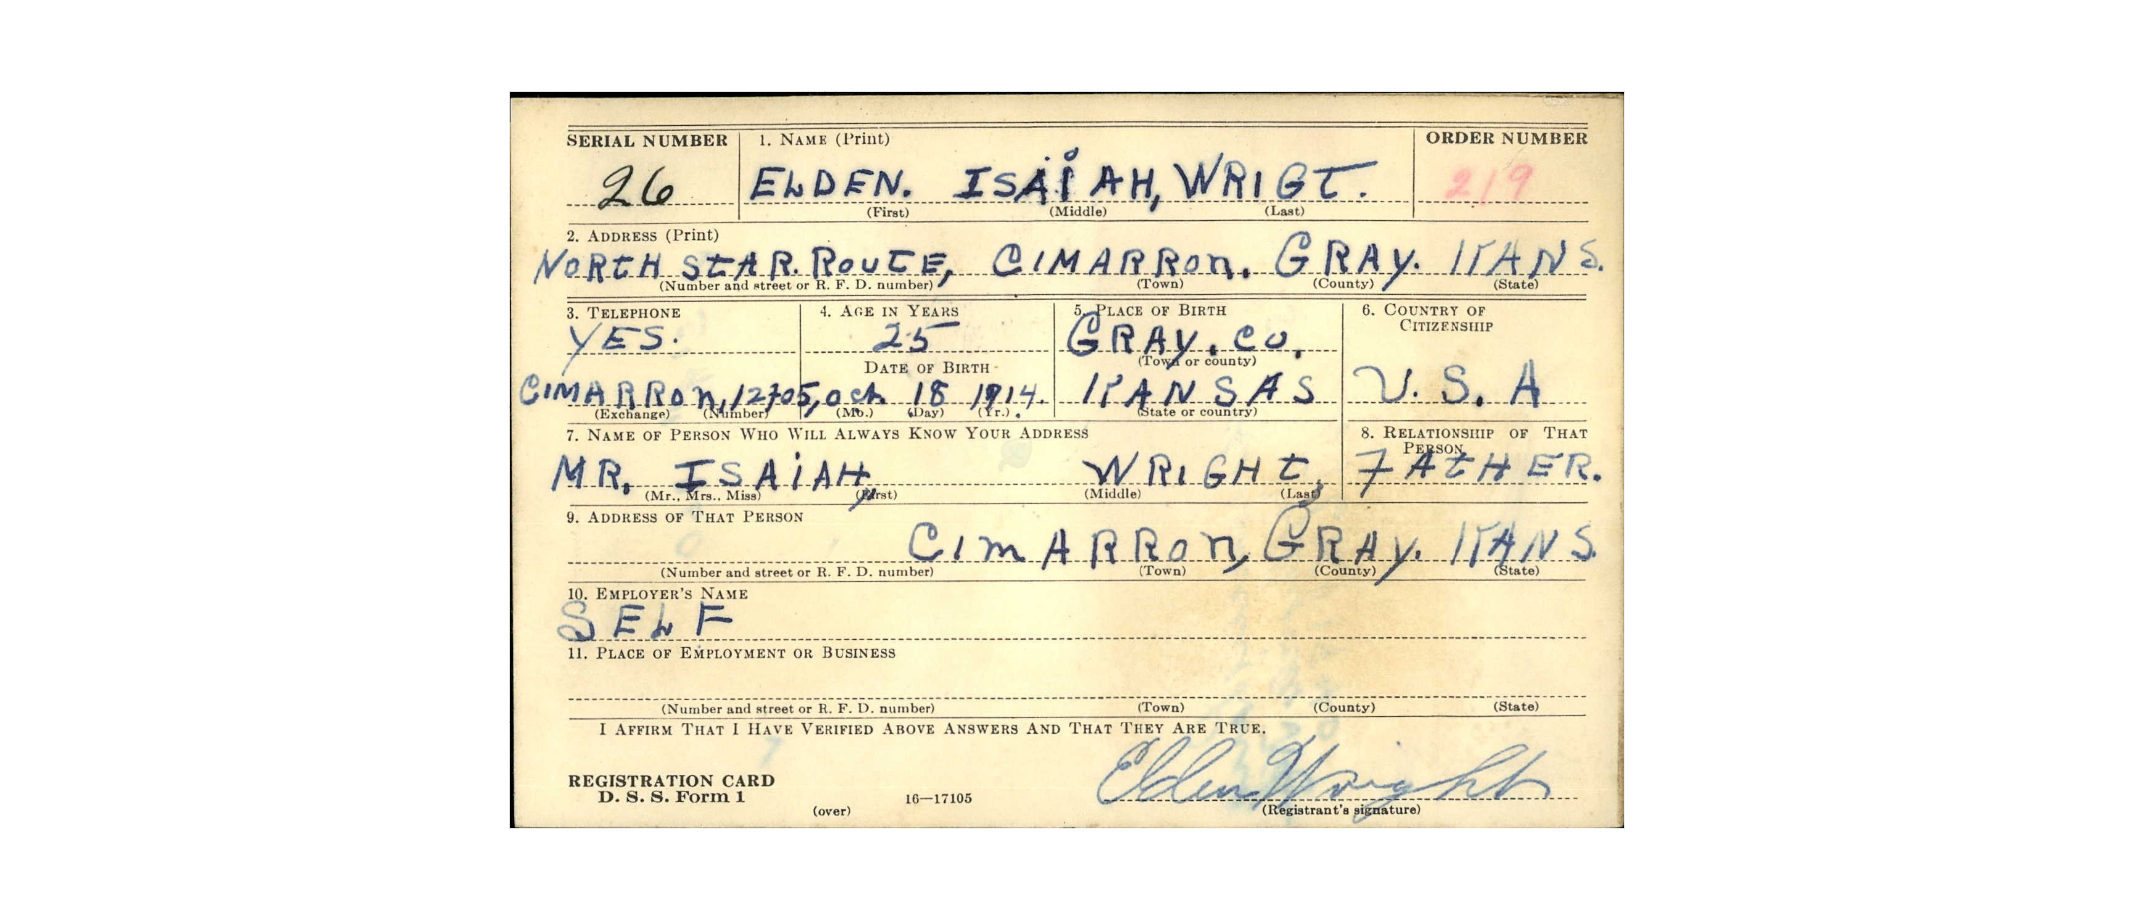 SERIAL NUMBER 1. NAME (Print) ORDER NUMBER
26 ELDEN. ISAIAH, WRIGT. 219
(First) (Middle) (Last)
2. ADDRESS (Print)
NORTH STAR. ROUTE, CIMARRON, GRAY. KANS.
(Number and street or R. F. D. number) (Town) (County) (State)
3. TELEPHONE 4. AGE IN YEARS 5. PLACE OF BIRTH 6. COUNTRY OF CITIZENSHIP
YES. 25 GRAY. CO.
DATE OF BIRTH (Town or county)
CIMARRON, 12705, Oct. 18 1914. KANSAS U. S. A
(Exchange) (Number) (Mo.) (Day) (Yr.) (State or country)
7. NAME OF PERSON WHO WILL ALWAYS KNOW YOUR ADDRESS 8. RELATIONSHIP OF THAT PERSON
MR. ISAIAH, WRIGHT, FATHER.
(Mr., Mrs., Miss) (First) (Middle) (Last)
9. ADDRESS OF THAT PERSON
CIMARRON, GRAY. KANS.
(Number and street or R. F. D. number) (Town) (County) (State)
10. EMPLOYER'S NAME
SELF
11. PLACE OF EMPLOYMENT OR BUSINESS
(Number and street or R. F. D. number) (Town) (County) (State)
I AFFIRM THAT I HAVE VERIFIED ABOVE ANSWERS AND THAT THEY ARE TRUE.
Elden Wright
REGISTRATION CARD
D. S. S. Form 1 16—17105
(over) (Registrant's signature)